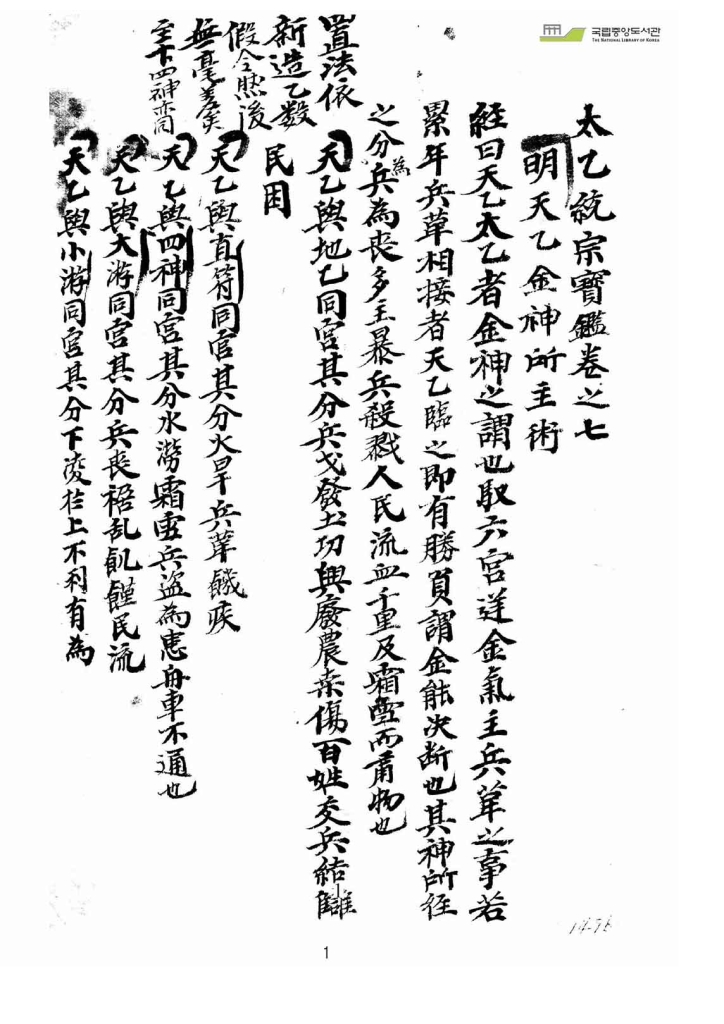 국립중앙도서관
THE NATIONAL LIBRARY OF KOREA
太乙統宗寶鑑卷之七
明天乙金神所主術
經曰天乙太乙者金神之謂也馭六宮逆金氣主兵革之事若
累年兵革相接者天乙臨之即有勝負謂金能決断也其神所經
之分兵為喪多主暴兵殺戮人民流血千里及霜雪而肅物也
為
天乙與地乙同宮其分兵戈發土功興廢農桒傷百姓交兵結讎
民困
天乙與直符同宮其分火旱兵革饑疾
天乙與四神同宮其分水澇霜雹兵盜為患舟車不通也
天乙與大游同宮其分兵喪禍乱飢饉民流
天乙與小游同宮其分下凌於上不利有為
置法依
新造乙数
假令然後
無毫差矣
至十四神同
14-7B
1